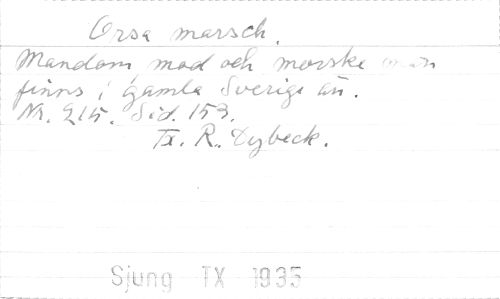 Orsa marsch.
Mandom, mod och morske män
finns i gamla Sverige än.
Nr. 215. Sid. 153.
Tx. R. Dybeck.
Sjung TX 1935